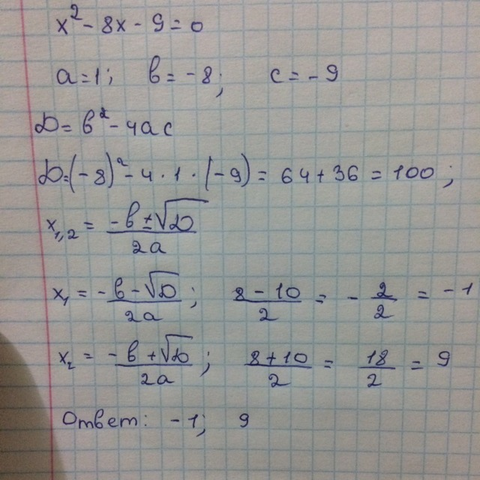 x² - 8x - 9 = 0
a = 1; b = -8; c = -9
D = b² - 4ac
D = (-8)² - 4 · 1 · (-9) = 64 + 36 = 100;
x₁,₂ = (-b ± √D) / 2a
x₁ = (-b - √D) / 2a; (8 - 10) / 2 = - 2/2 = -1
x₂ = (-b + √D) / 2a; (8 + 10) / 2 = 18/2 = 9
Ответ: -1; 9